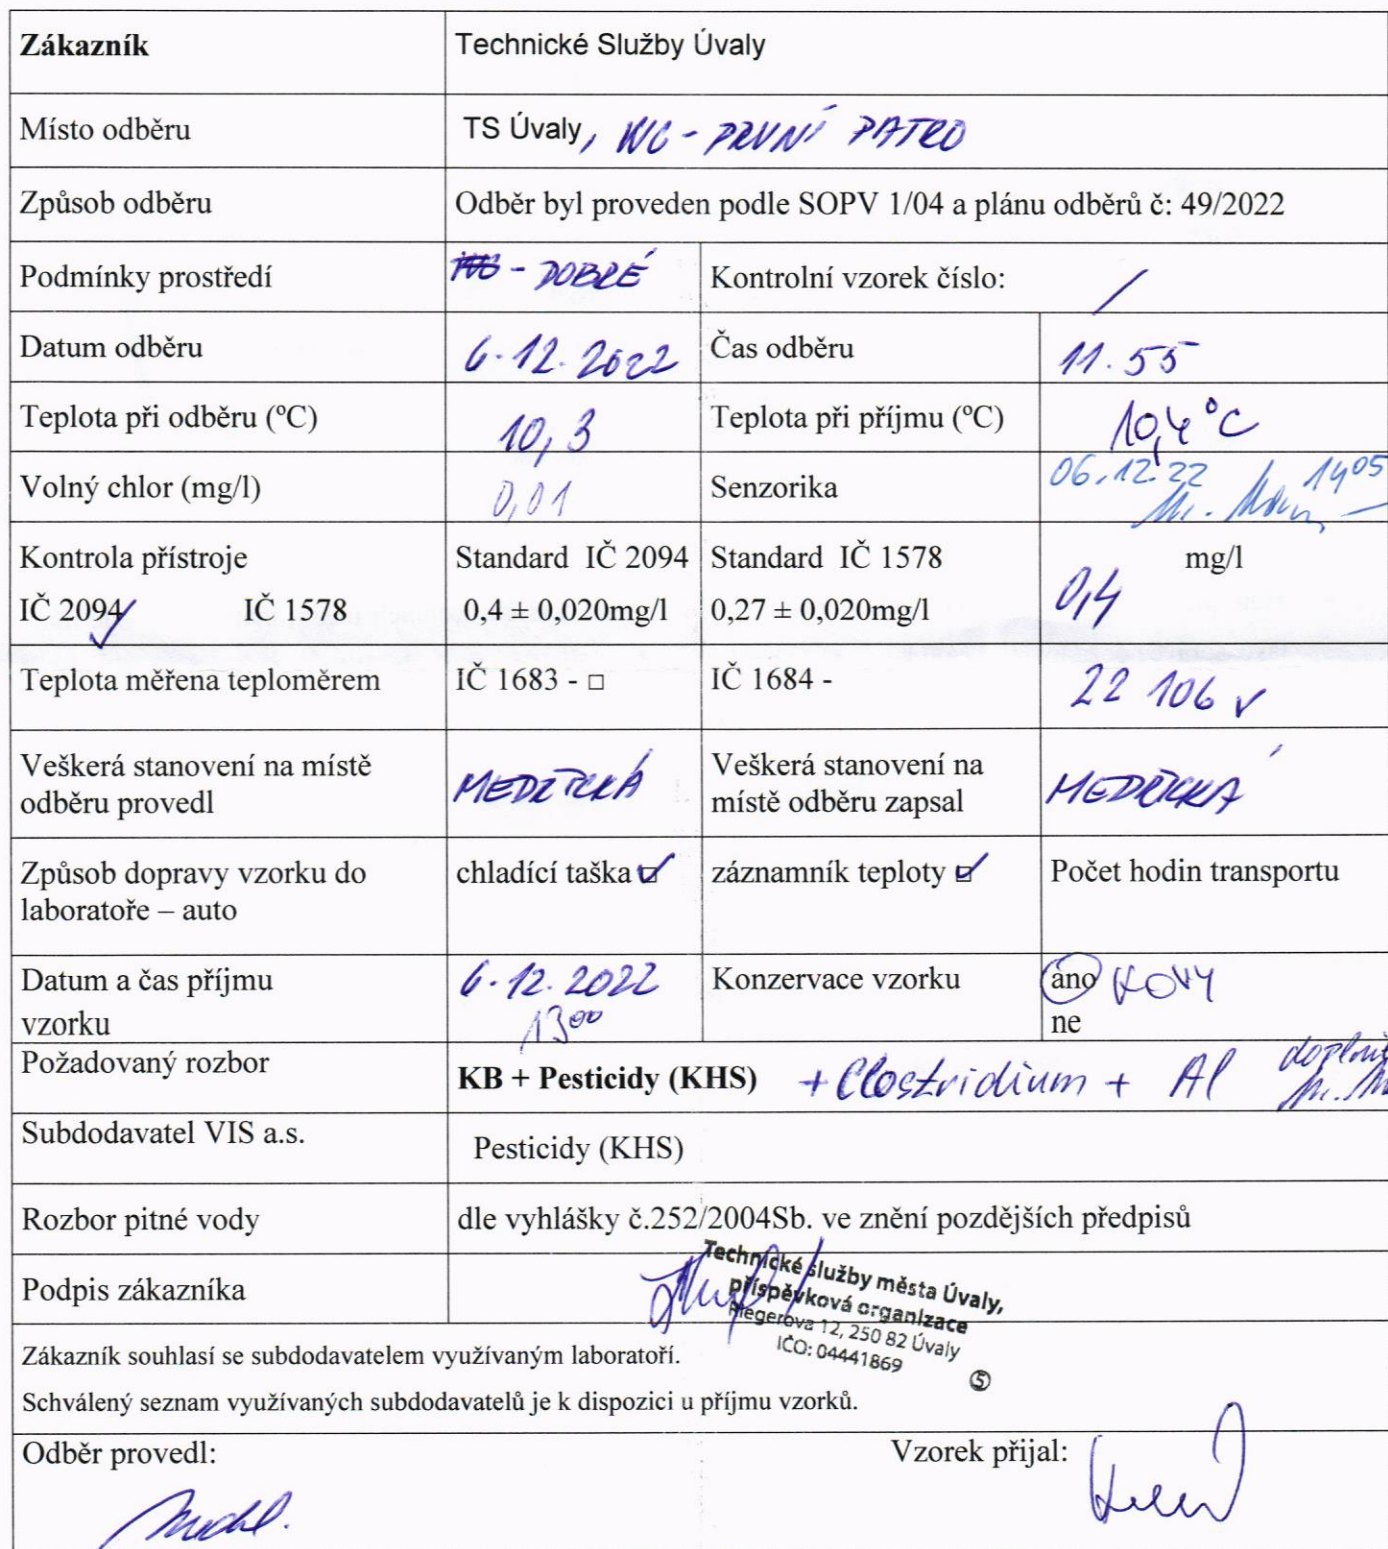 Zákazník Technické Služby Úvaly
Místo odběru TS Úvaly, WC - PRVNÍ PATRO
Způsob odběru Odběr byl proveden podle SOPV 1/04 a plánu odběrů č: 49/2022
Podmínky prostředí - DOBRÉ Kontrolní vzorek číslo: /
Datum odběru 6.12.2022 Čas odběru 11.55
Teplota při odběru (ºC) 10,3 Teplota při příjmu (ºC) 10,4°C
Volný chlor (mg/l) 0,01 Senzorika 06.12.22 1405
Kontrola přístroje Standard IČ 2094 Standard IČ 1578 mg/l
IČ 2094 ✓ IČ 1578 0,4 ± 0,020mg/l 0,27 ± 0,020mg/l 0,4
Teplota měřena teploměrem IČ 1683 - □ IČ 1684 - 22 106 ✓
Veškerá stanovení na místě
odběru provedl
Veškerá stanovení na
místě odběru zapsal
Způsob dopravy vzorku do
laboratoře – auto
chladící taška ☑ záznamník teploty ☑ Počet hodin transportu
Datum a čas příjmu
vzorku
6.12.2022
1300
Konzervace vzorku
áno KOVY
ne
Požadovaný rozbor KB + Pesticidy (KHS) + Clostridium + Al
Subdodavatel VIS a.s. Pesticidy (KHS)
Rozbor pitné vody dle vyhlášky č.252/2004Sb. ve znění pozdějších předpisů
Podpis zákazníka
Technické služby města Úvaly,
příspěvková organizace
Riegerova 12, 250 82 Úvaly
IČO: 04441869
⑤
Zákazník souhlasí se subdodavatelem využívaným laboratoří.
Schválený seznam využívaných subdodavatelů je k dispozici u příjmu vzorků.
Odběr provedl: Vzorek přijal: